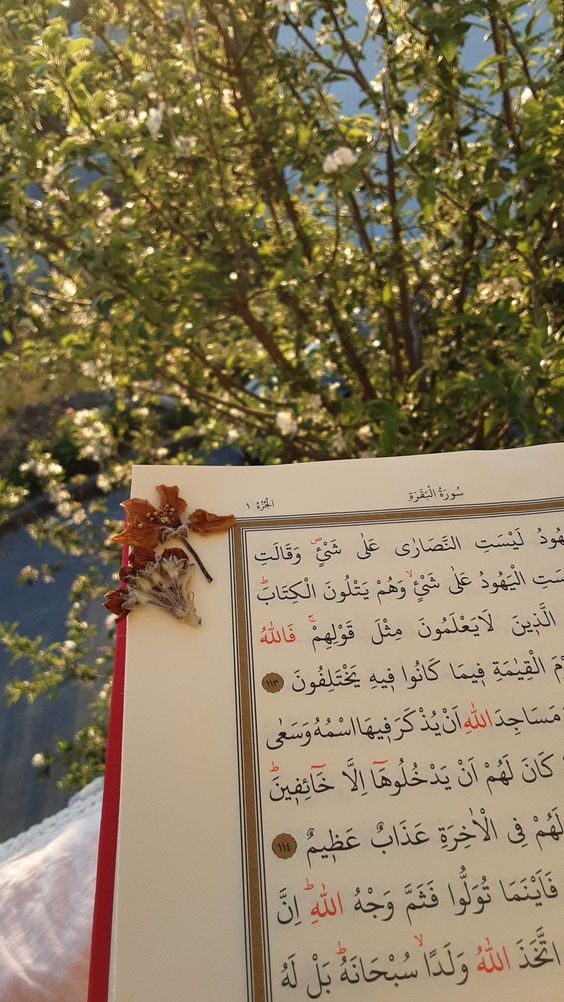 سُورَةُ الْبَقَرَةِ
اَلْجُزْءُ ١
هُودُ لَيْسَتِ النَّصَارٰى عَلٰى شَيْءٍۖ وَقَالَتِ
سَتِ الْيَهُودُ عَلٰى شَيْءٍۙ وَهُمْ يَتْلُونَ الْكِتَابَۜ
الَّذ۪ينَ لَايَعْلَمُونَ مِثْلَ قَوْلِهِمْۚ فَاللّٰهُ
مَ الْقِيٰمَةِ ف۪يمَا كَانُوا ف۪يهِ يَخْتَلِفُونَ ١١٣
مَسَاجِدَ اللّٰهِ اَنْ يُذْكَرَ ف۪يهَا اسْمُهُ وَسَعٰى
كَانَ لَهُمْ اَنْ يَدْخُلُوهَٓا اِلَّا خَٓائِف۪ينَۜ
لَهُمْ فِي الْاٰخِرَةِ عَذَابٌ عَظ۪يمٌ ١١٤
فَاَيْنَمَا تُوَلُّوا فَثَمَّ وَجْهُ اللّٰهِۜ اِنَّ
اتَّخَذَ اللّٰهُ وَلَدًاۙ سُبْحَانَهُۜ بَلْ لَهُ